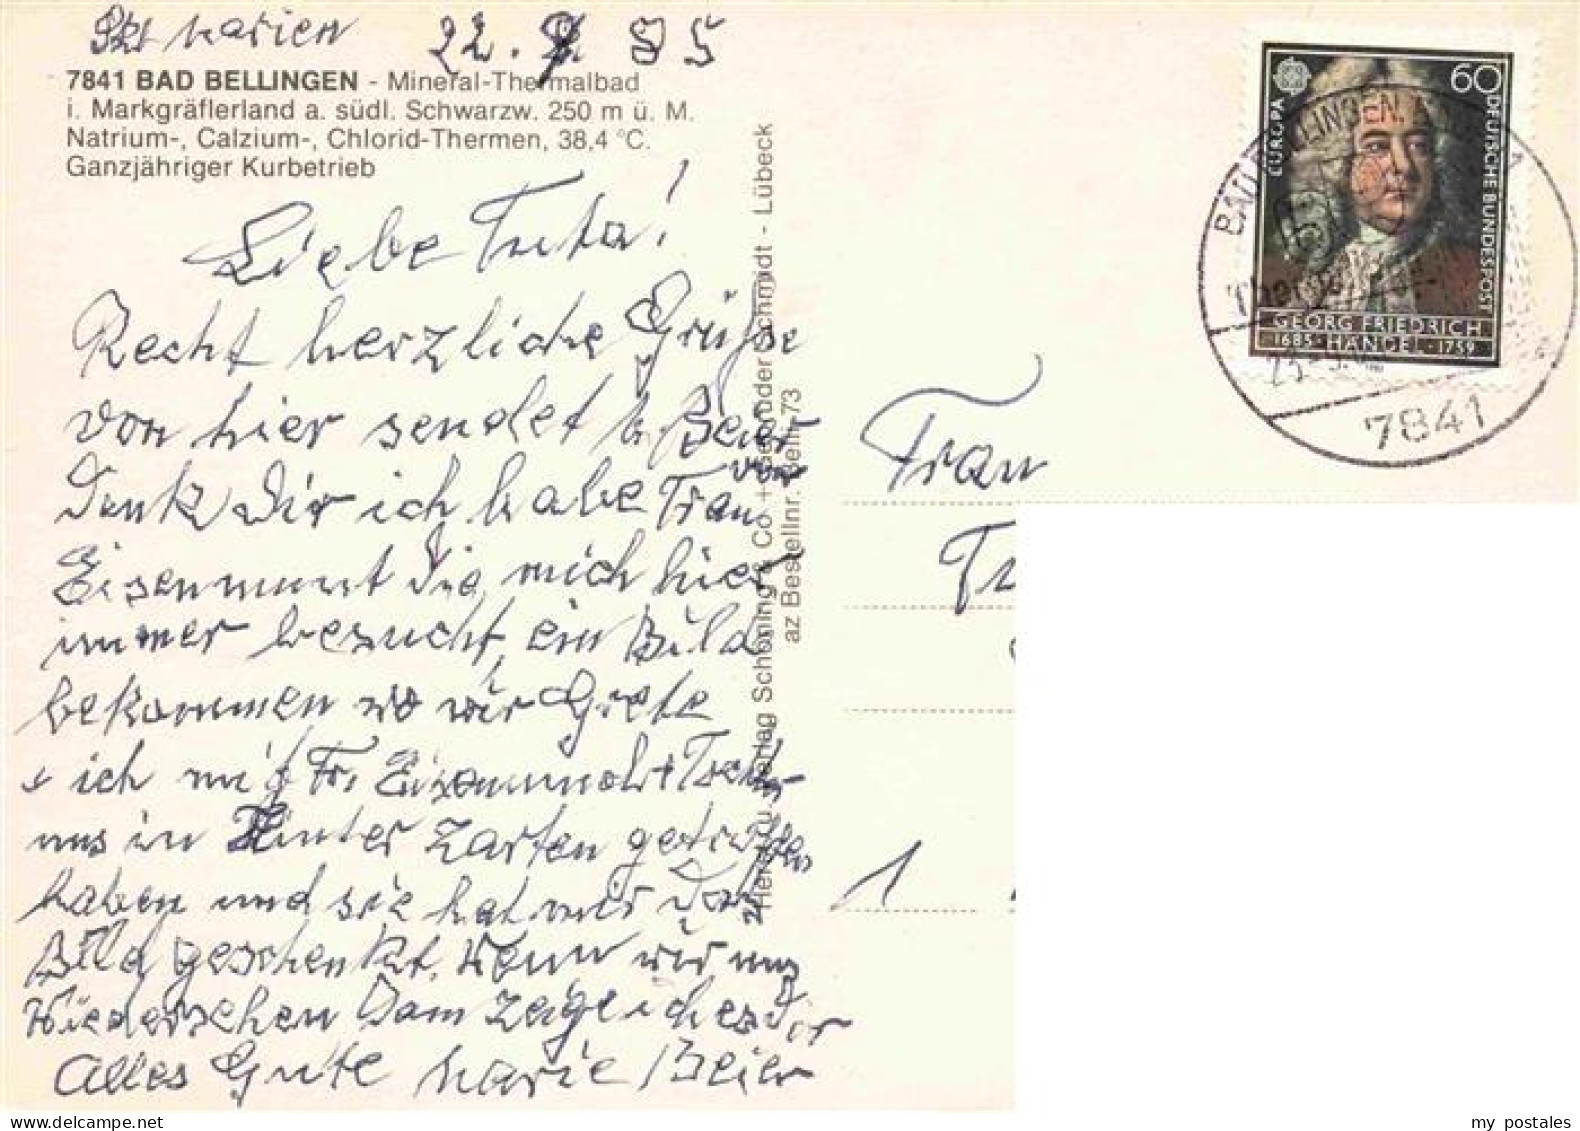 22. 85
7841 BAD BELLINGEN - Mineral-Thermalbad
i. Markgräflerland a. südl. Schwarzw. 250 m ü. M.
Natrium-, Calzium-, Chlorid-Thermen, 38,4 °C.
Ganzjähriger Kurbetrieb
Liebe Truta!
Recht herzliche Grüße
von hier sendet Beier
Dank Dir ich habe von Frau
Eisenmunt die mich hier
immer besucht, ein Bild
bekommen wo wir Grete
+ ich mit Fr. Eisenmunt
uns in Hinter Zarten getroffen
haben und sie hat mir das
Bild geschenkt, Wenn wir uns
Wiedersehen Dann zeige ich es Dir
Alles Gute Marie Beier
Herst. u. Verlag Schöning & Co + Gebrüder Schmidt - Lübeck
az Bestellnr. Bellin 73
EUROPA
60
DEUTSCHE BUNDESPOST
GEORG FRIEDRICH
1685 · HÄNDEL · 1759
7841
Frau
1
my postales